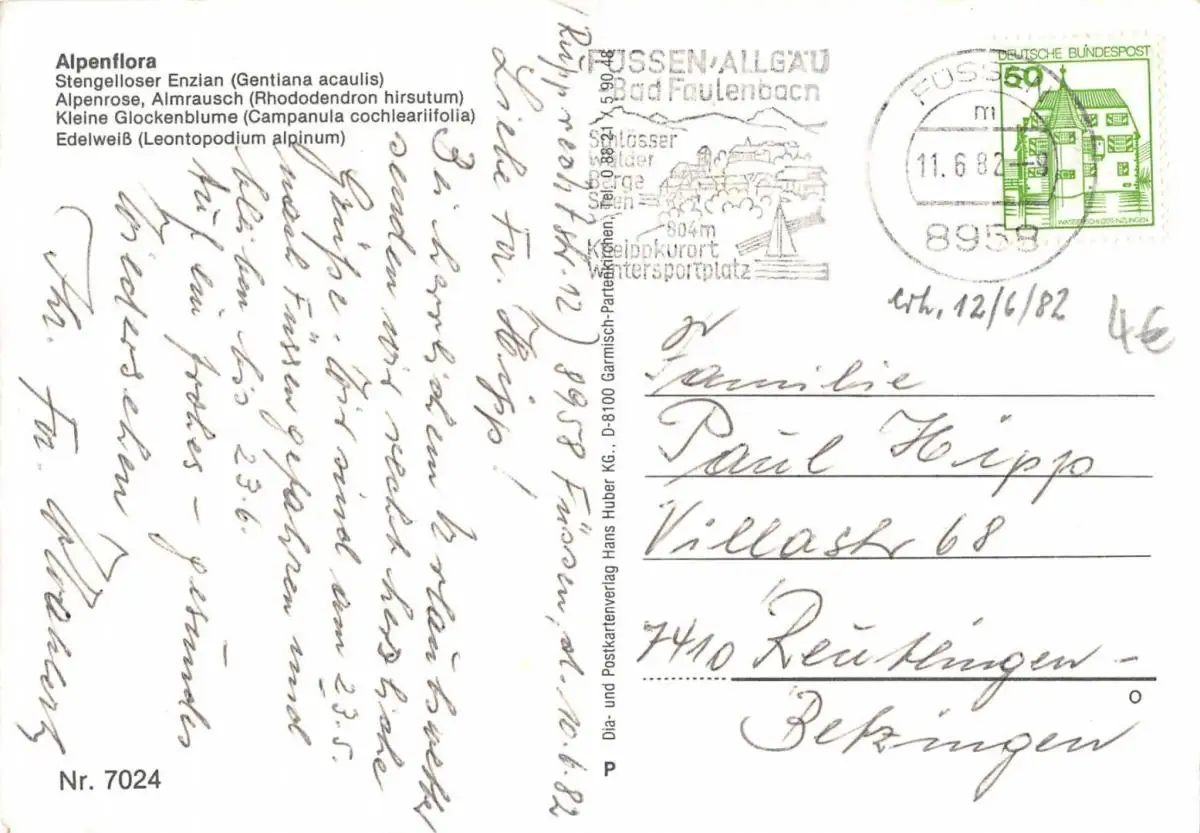 Alpenflora
Stengelloser Enzian (Gentiana acaulis)
Alpenrose, Almrausch (Rhododendron hirsutum)
Kleine Glockenblume (Campanula cochleariifolia)
Edelweiß (Leontopodium alpinum)
(Rupprechtstr. 12) 8958 Füssen, d. 10.6.82
Liebe Fr. Hipp!
Bei herrlichem Urlaubswetter
senden wir recht herzliche
Grüße. Wir sind am 23.5.
nach Füssen gefahren und
bleiben bis 23.6.
Auf ein frohes - gesundes
Wiedersehen
Ihr. Fr.
Nr. 7024
Dia- und Postkartenverlag Hans Huber KG., D-8100 Garmisch-Partenkirchen, Tel. 0 88 21 / 5 90 48
P
FÜSSEN/ALLGÄU
Bad Faulenbach
Schlösser
Wälder
Berge
Seen
804m
Kneippkurort
Wintersportplatz
FÜSSEN
m
11.6.82-9
8958
DEUTSCHE BUNDESPOST
50
WASSERSCHLOSS INZLINGEN
erh. 12/6/82
4€
Familie
Paul Hipp
Villastr 68
7410 Reutlingen -
Betzingen
O